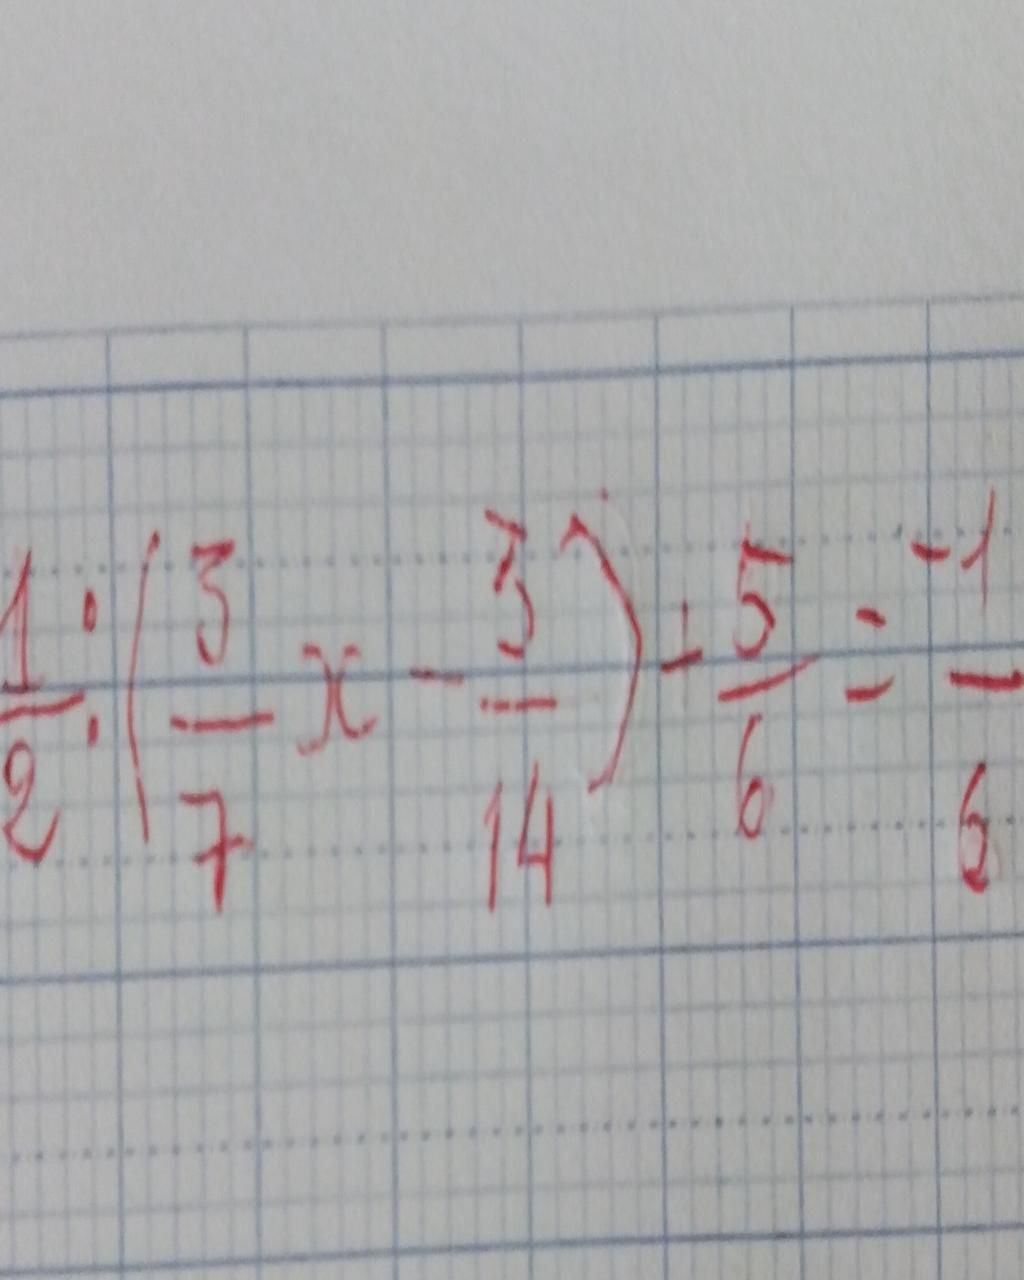 1/2 : (3/7 x - 3/14) + 5/6 = -1/6